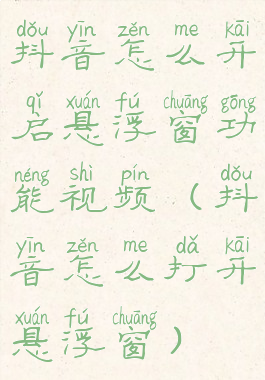 dǒu yīn zěn me kāi
抖音怎么开
qǐ xuán fú chuāng gōng
启悬浮窗功
néng shì pín dǒu
能视频（抖
yīn zěn me dǎ kāi
音怎么打开
xuán fú chuāng
悬浮窗）